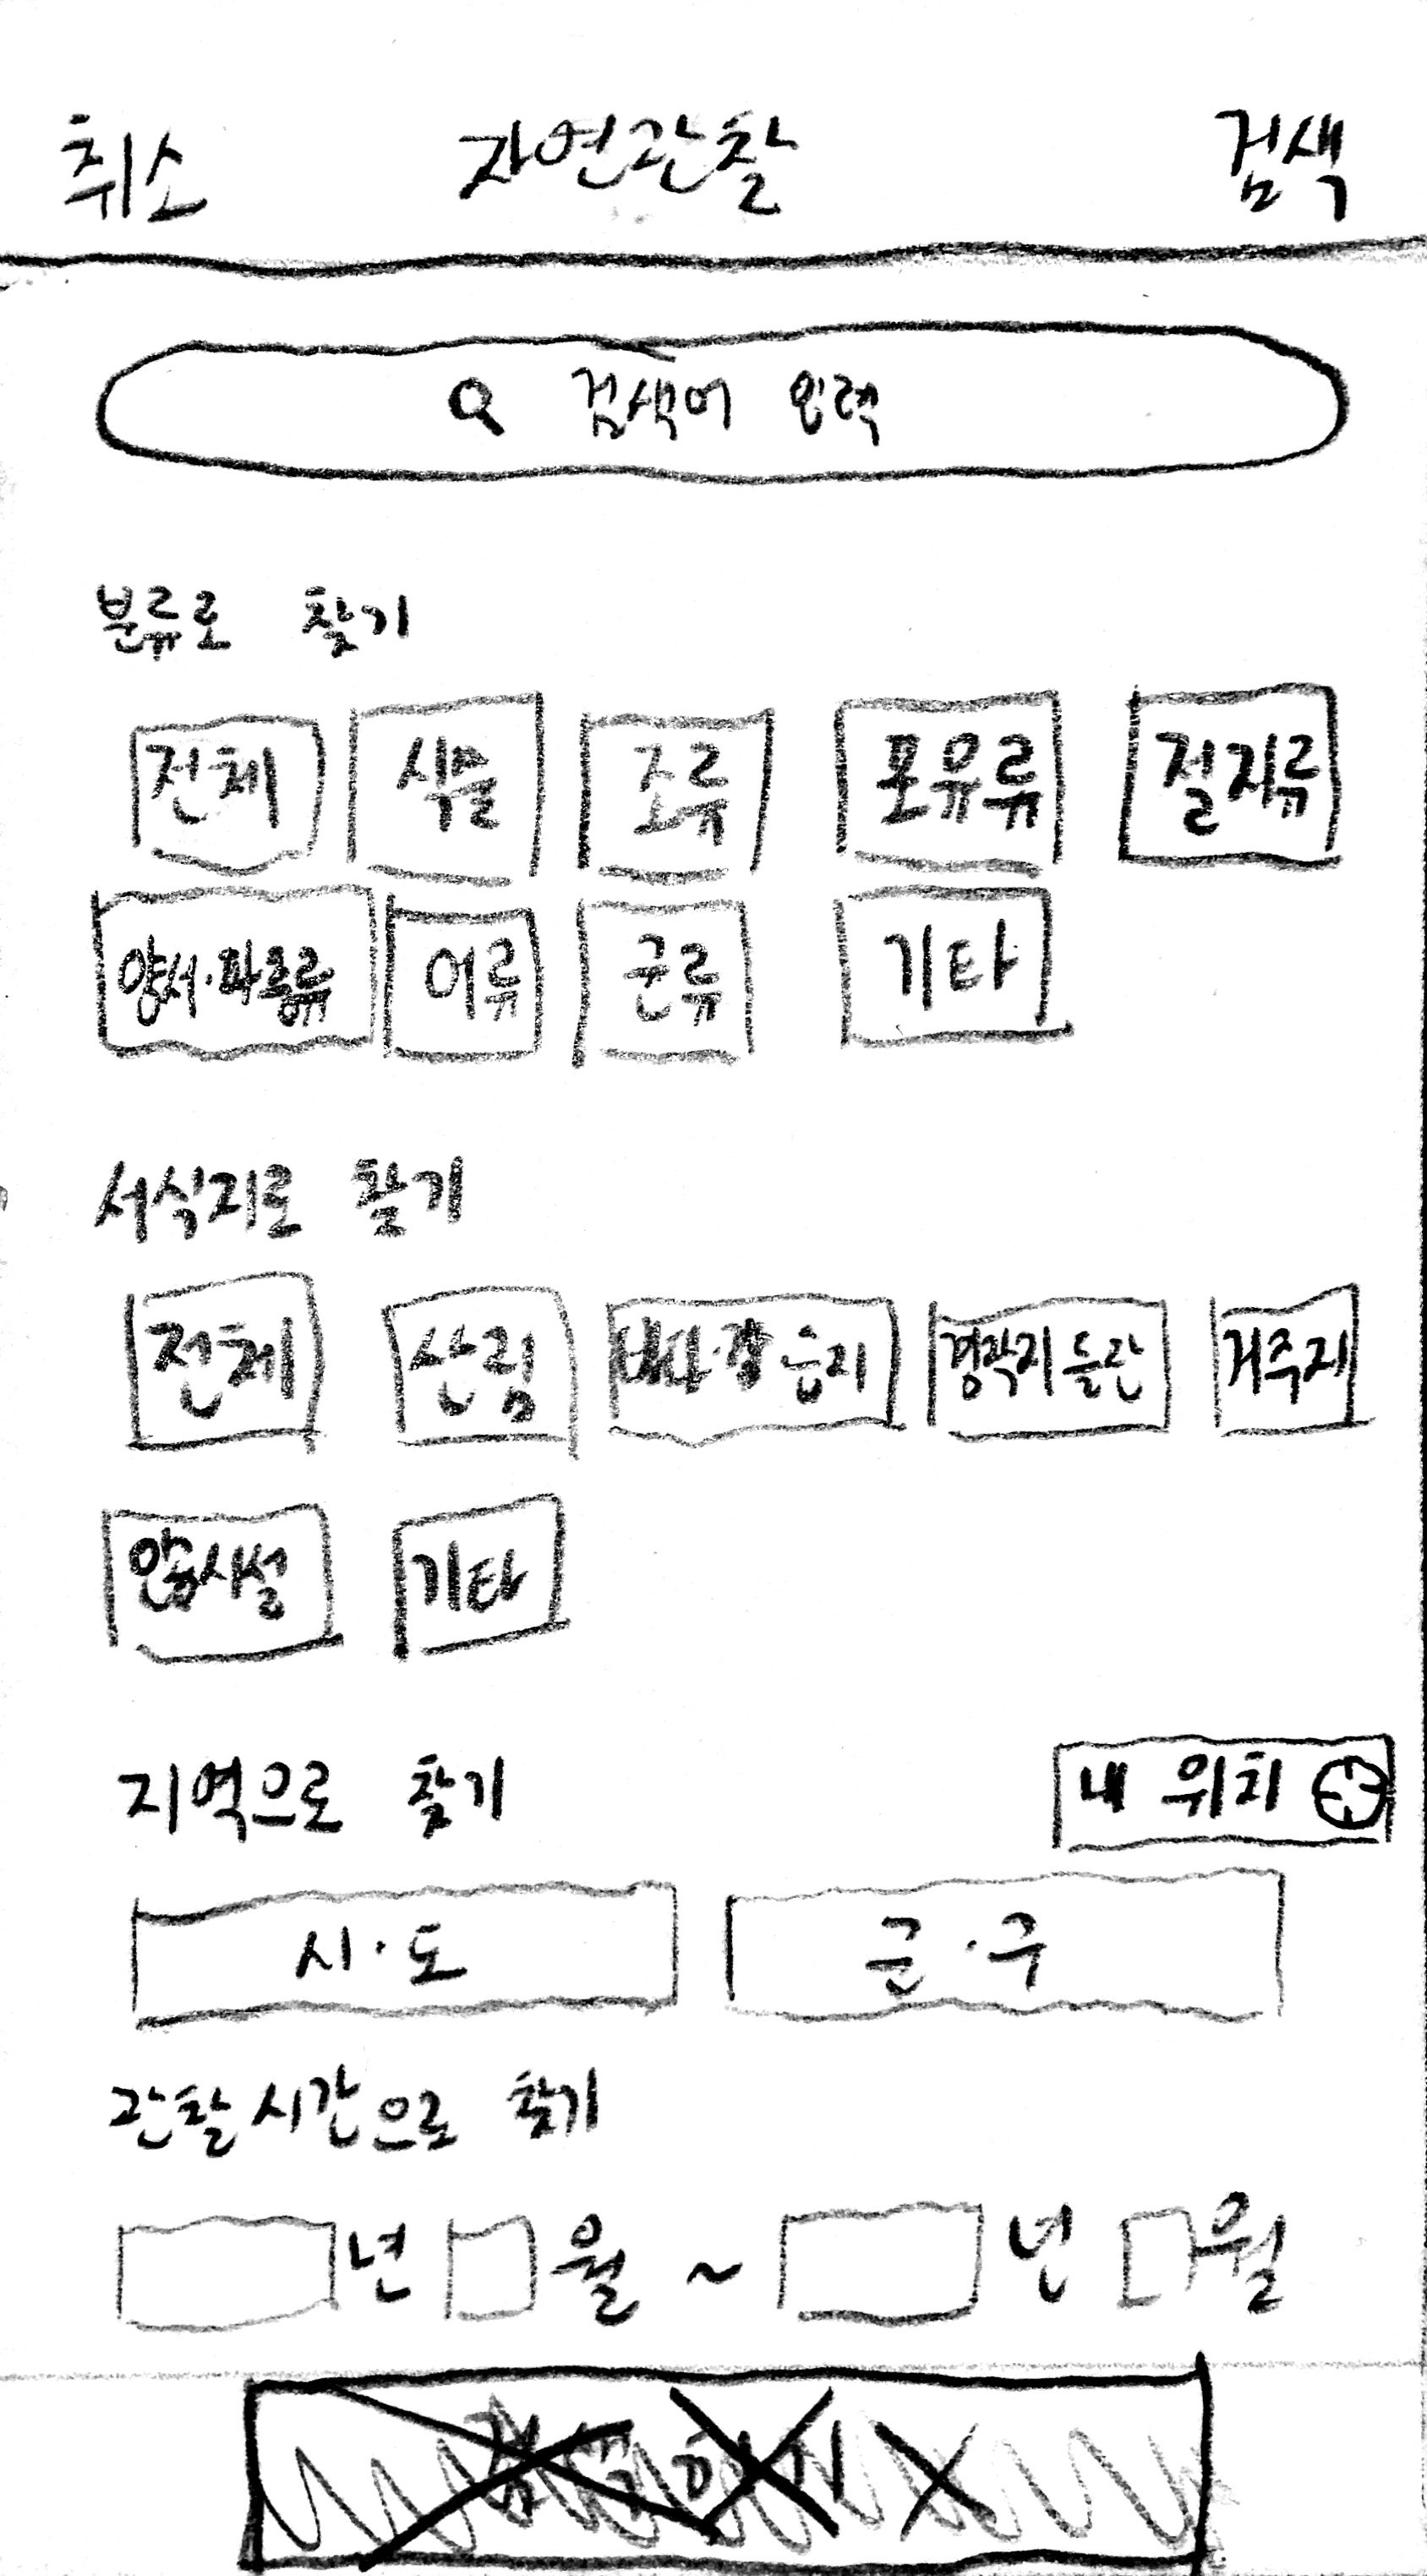 취소 자연관찰 검색
검색어 입력
분류로 찾기
전체 식물 조류 포유류 절지류
양서·파충류 어류 균류 기타
서식지로 찾기
전체 산림 바다·강 습지 경작지 들판 거주지
기타
지역으로 찾기 내 위치
시·도 군·구
관찰시간으로 찾기
년 월 ~ 년 월